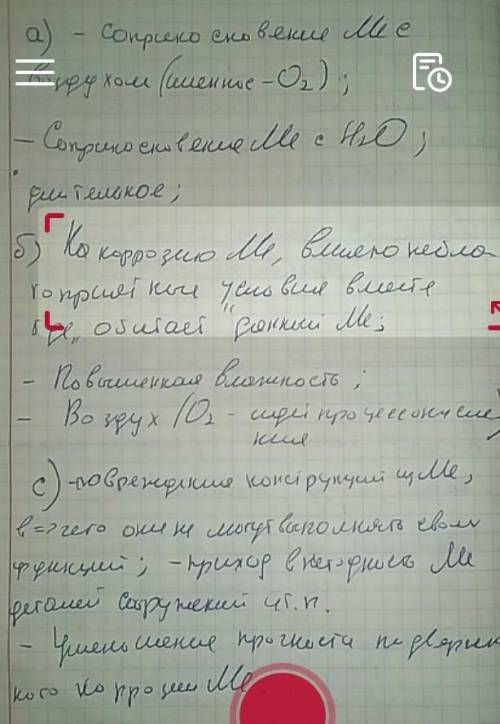 а) - Соприкосновение Ме с
воздухом (именно - O₂);
- Соприкосновение Ме с H₂O;
длительное;
б) На коррозию Ме, влияют небла-
гоприятные условия в месте
где „обитает" данный Ме;
- Повышенная влажность;
- Воздух (O₂ - идёт процесс окисле
ния
с) - повреждения конструкций из Ме,
в => чего они не могут выполнять свои
функций; - приход в негодность Ме
деталей сооружений и т.п.
- Уменьшение прочности подвержен
ного коррозии Ме